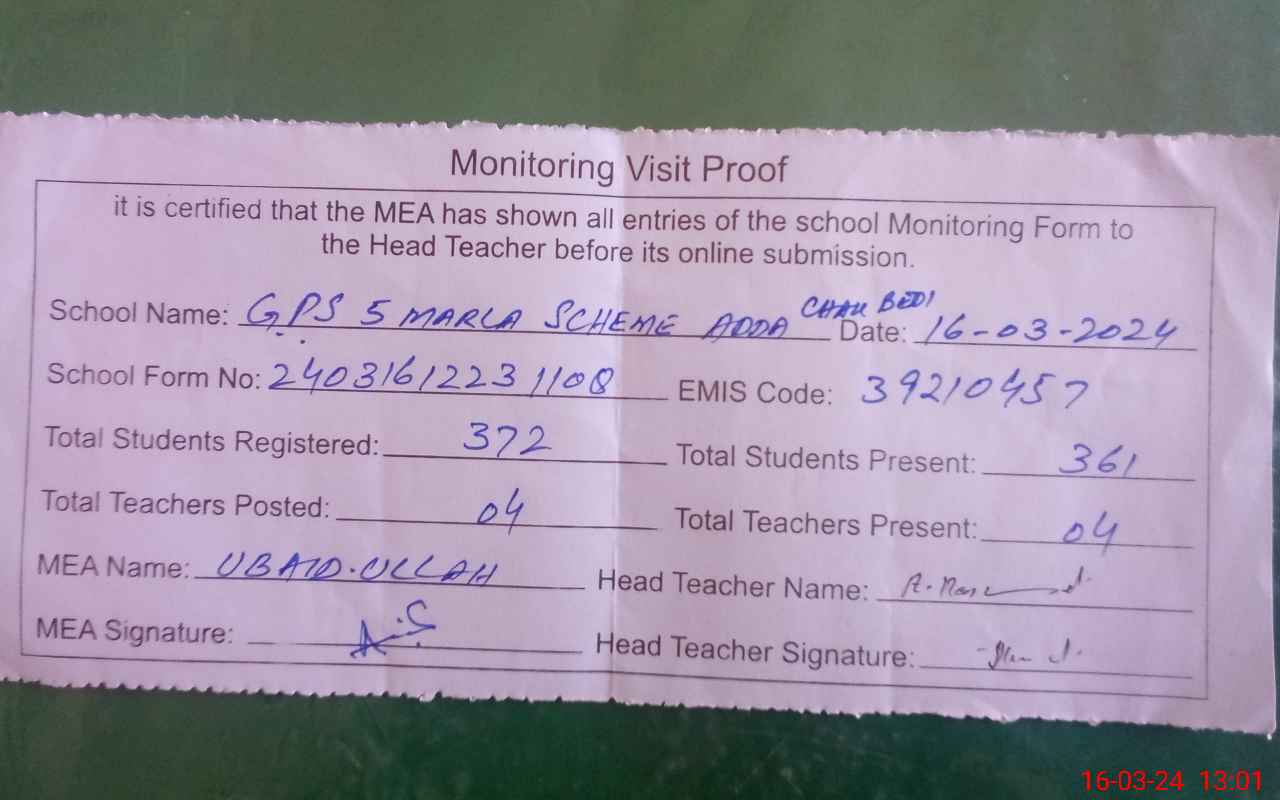 Monitoring Visit Proof
it is certified that the MEA has shown all entries of the school Monitoring Form to
the Head Teacher before its online submission.
School Name: G.P.S 5 MARLA SCHEME ADDA CHAK BEDI Date: 16-03-2024
School Form No: 24031612231108 EMIS Code: 39210457
Total Students Registered: 372 Total Students Present: 361
Total Teachers Posted: 04 Total Teachers Present: 04
MEA Name: UBAID.ULLAH Head Teacher Name:
MEA Signature: Head Teacher Signature:
16-03-24 13:01